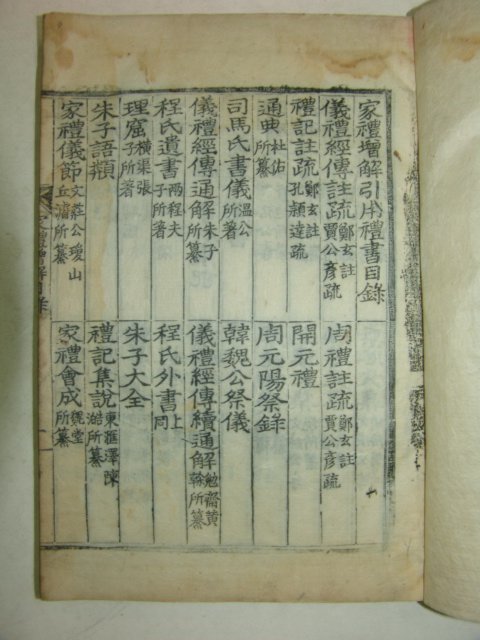 家禮增解引用禮書目錄
儀禮經傳註疏 鄭玄註 賈公彦疏 周禮註疏 鄭玄註 賈公彦疏
禮記註疏 鄭玄註 孔穎達疏 開元禮
通典 杜佑所纂 周元陽祭錄
司馬氏書儀 溫公所著 韓魏公祭儀
儀禮經傳通解 朱子所纂 儀禮經傳續通解 勉齋黃榦所纂
程氏遺書 兩程夫子所著 程氏外書 上同
理窟 橫渠張子所著 朱子大全
朱子語類 禮記集說 東滙澤陳澔所纂
家禮儀節 文莊公瓊山丘濬所纂 家禮會成 堂所纂